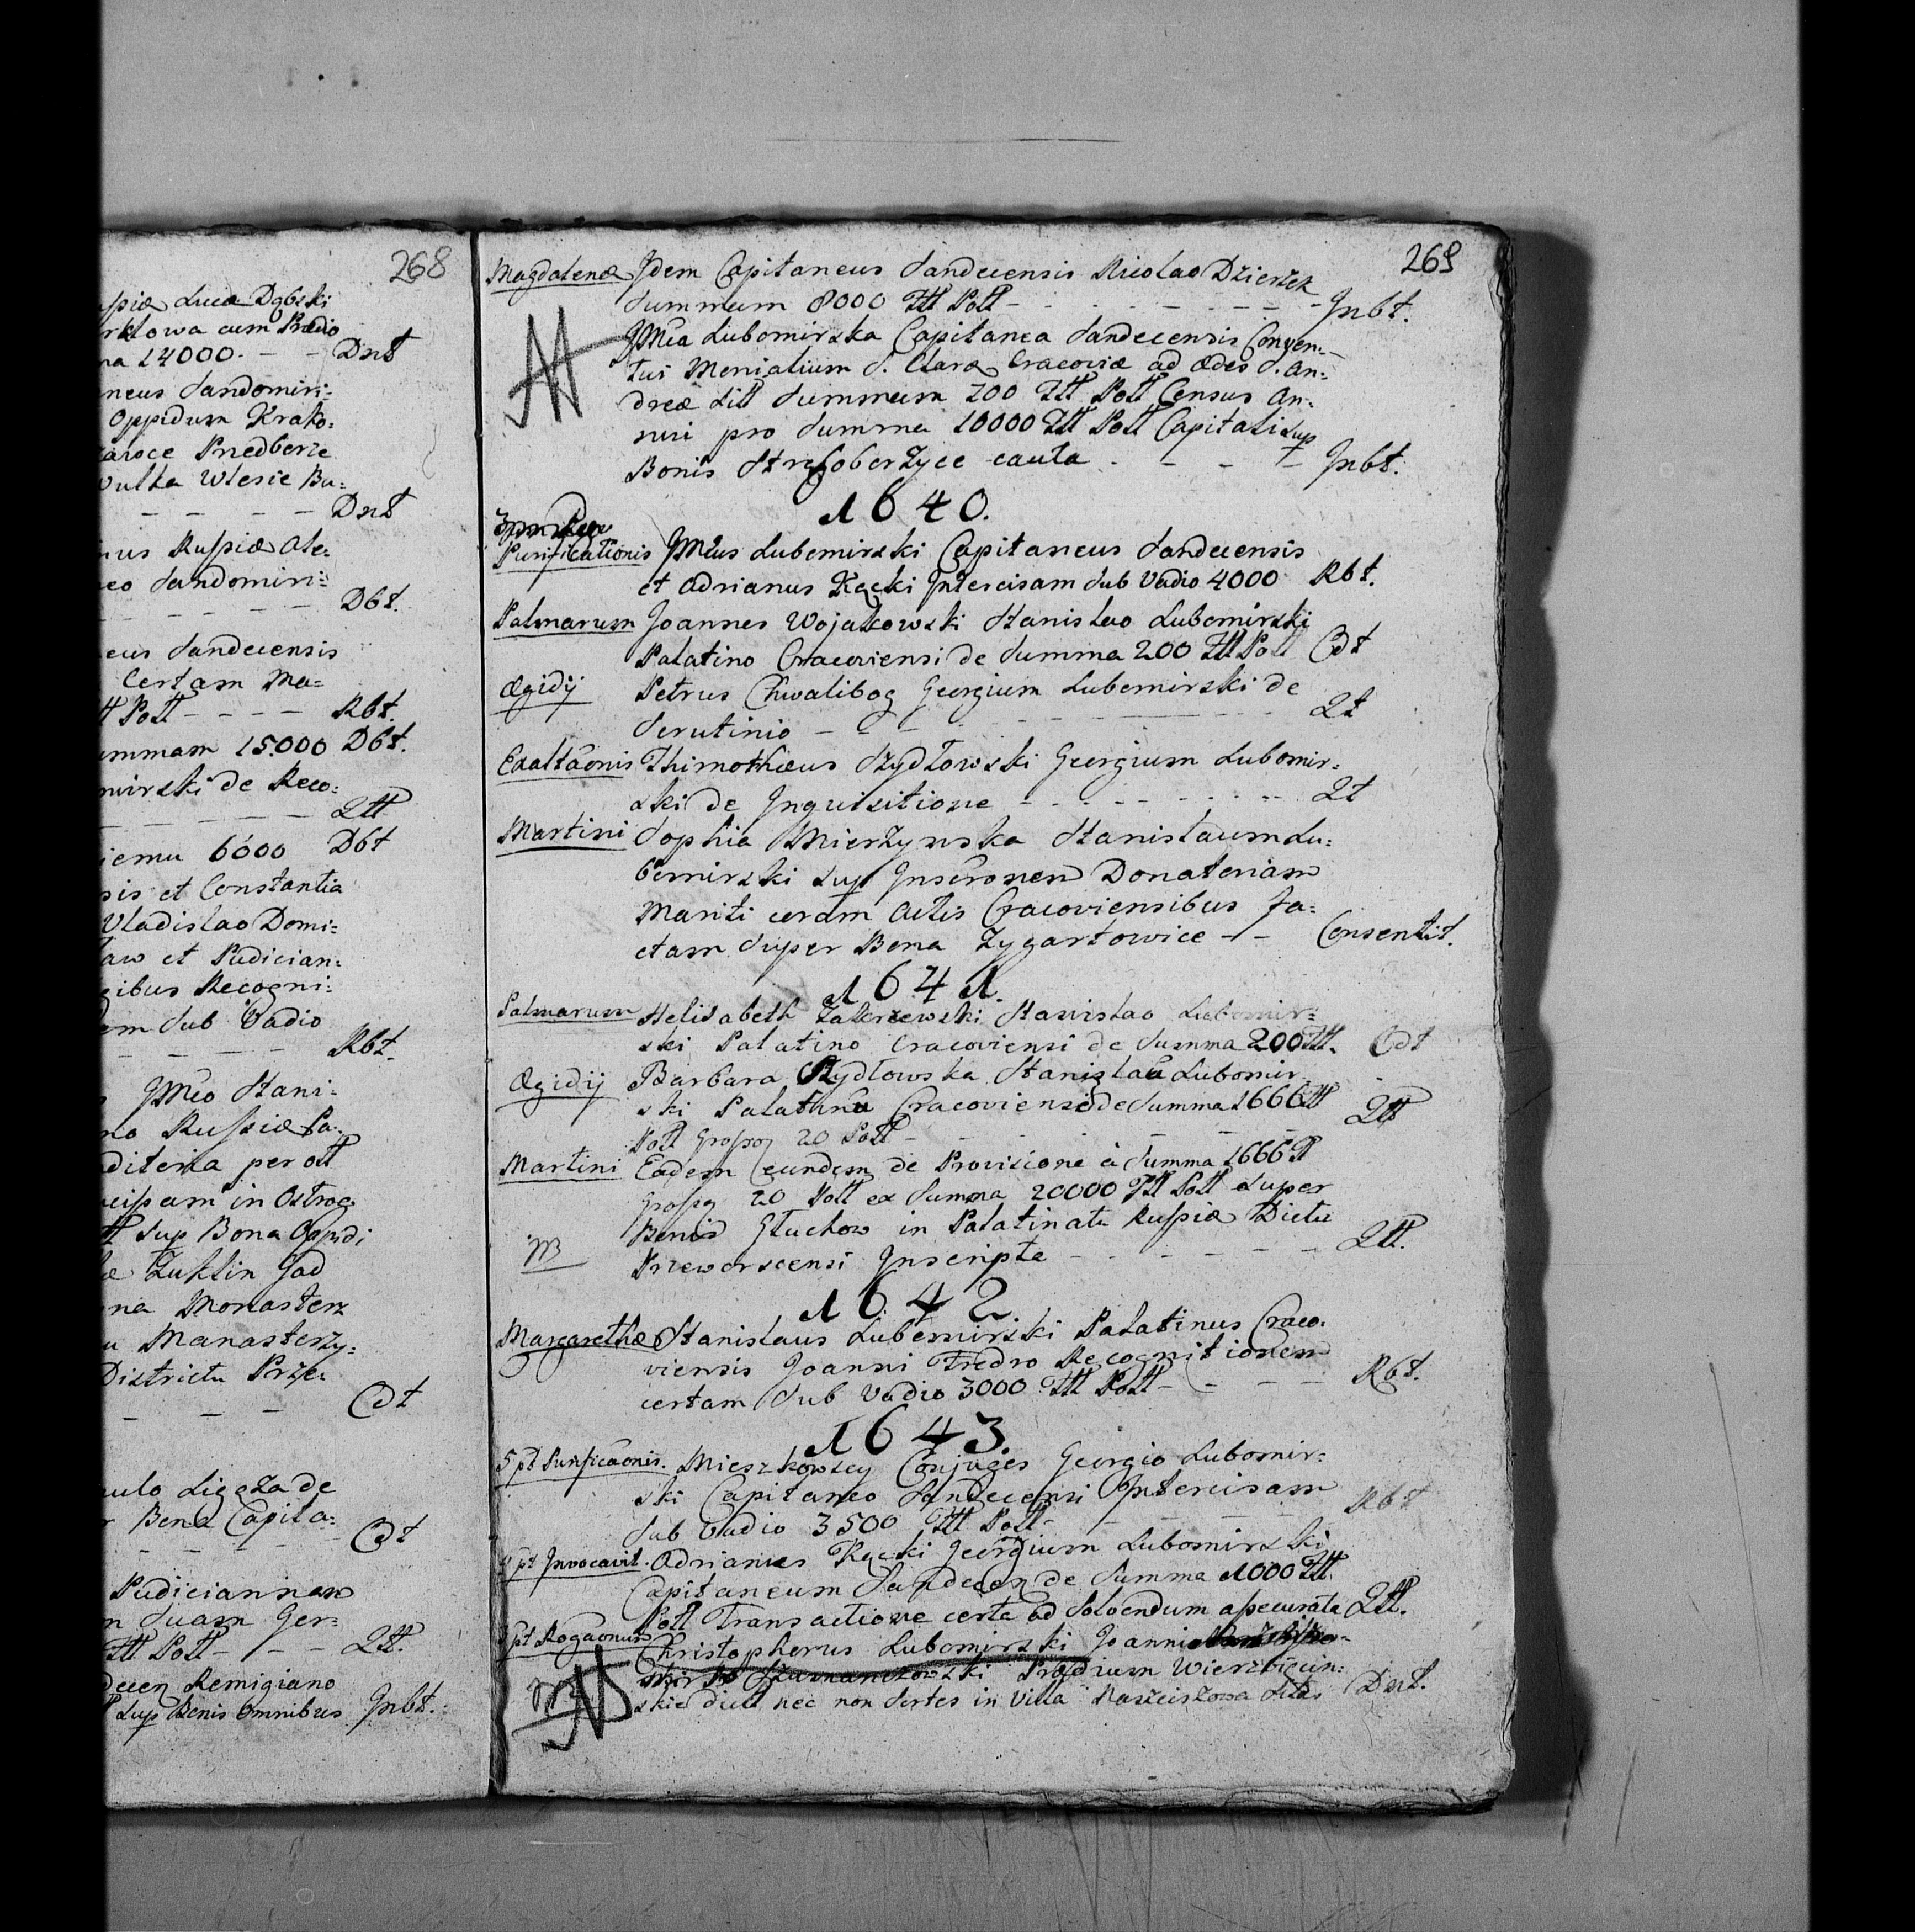 268
Russiæ Lucæ Dąbski
rklowa cum Prædio
na 14000. - - Dnt
neus Sandomiri=
Oppidum Krako=
Przedberze
Wulka Wlesie Bu=
- - - - Dnt
nus Russiæ Ale=
eo Sandomiri=
- - - - Dbt.
eus Sandecensis
Certam Ma=
tt Poll - - - - Rbt.
ummam 15.000 Dbt.
mirski de Reco=
- - - - - - Qtt
iemu 6000 Dbt
sis et Constantia
Vladislao Domi=
aw et Pudician=
gibus Recogni=
em Sub Vadio
- - - - - Rbt.
JMco Stani=
no Russiæ Pa=
diteria per ott
cipam in Ostrog
tt Sup Bona Oppidi
æ Żuklin Gad
na Monasterz
u Manasterzy=
Districtu Prze=
- - - Cdt
ulo Ligęza de
r Bena Capita=
- - - - - Cdt
Pudiciannam
m Suam Ger=
Ztt Poll - - - Qtt.
decen Remigiano
Sup Benis Omnibus Jnbt.
269
Magdalenæ Jdem Capitaneus Sandecensis Nicolao Dzierżek
Summam 8000 Ztt Poll - - - - - - Jnbt.
JMca Lubomirska Capitanea Sandecensis Conven=
tui Monialium S. Claræ Cracoviæ ad Ædes S. An=
dreæ Sitt Summam 700 Ztt Poll Census An=
nui pro Summa 10000 Ztt Poll Capitali Sup
Bonis Strzoberzyce cauta - - - - Jnbt.
1640.
Purificationis JMcus Lubomirski Capitaneus Sandecensis
et Adrianus Kącki Jntercisam Sub Vadio 4000 Rbt.
Palmarum Joannes Wojakowski Stanislao Lubomirski
Palatino Cracoviensi de Summa 200 Ztt Poll Cdt
Ægidij Petrus Chwalibog Georgium Lubomirski de
Scrutinio - - - - - - Qt
Exaltaonis Thimothæus Szydłowski Georgium Lubomir=
ski de Jnquisitione - - - - - - - - Qt
Martini Sophia Mierzynska Stanislaum Lu=
bomirski sup Jnscronem Donatoriam
Mariti coram Actis Cracoviensibus fa=
ctam Super Bona Zygartowice - - Consentit.
1641.
Palmarum Helisabeth Zakrzewski Stanislao Lubomir=
ski Palatino Cracoviensi de Summa 200 Ztt. Cdt
Ægidij Barbara Szydłowska Stanislaū Lubomir
ski Palatinū Cracoviensē de Summa 1666 Ztt
Poll Grossos 20 Poll - - - - - Qtt
Martini Eadem eundem de Provisione à Summa 1666 Ztt
Grossos 20 Poll ex Summa 20000 Ztt Poll super
Bonis Głuchow in Palatinatu Russiæ Dictu
NB Przeworscensi Jnscripta - - - - - - Qtt.
1642
Margarethæ Stanislaus Lubomirski Palatinus Craco=
viensis Joanni Fredro Recognitionem
certam Sub Vadio 3000 Ztt Poll - - - - Rbt.
1643
5 pt Purificaonis. Mieszkowscy Conjuges Georgio Lubomir=
ski Capitaneo Sandecensi Jntercisam
Sub Vadio 3500 Ztt Poll - - - - - Rbt
4 pt Jnvocavit. Adrianus Kącki Georgium Lubomirski
Capitaneum Sandecen de Summa 1000 Ztt
Poll Transactione certa ad Solvendum assecurata Qtt.
pt Rogaonum Christopherus Lubomirski Joanni
Szumanczowski Prædium Wierzbięcin=
skie dictt nec non Sortes in Villa Raszciszowa Sitas Dnt.